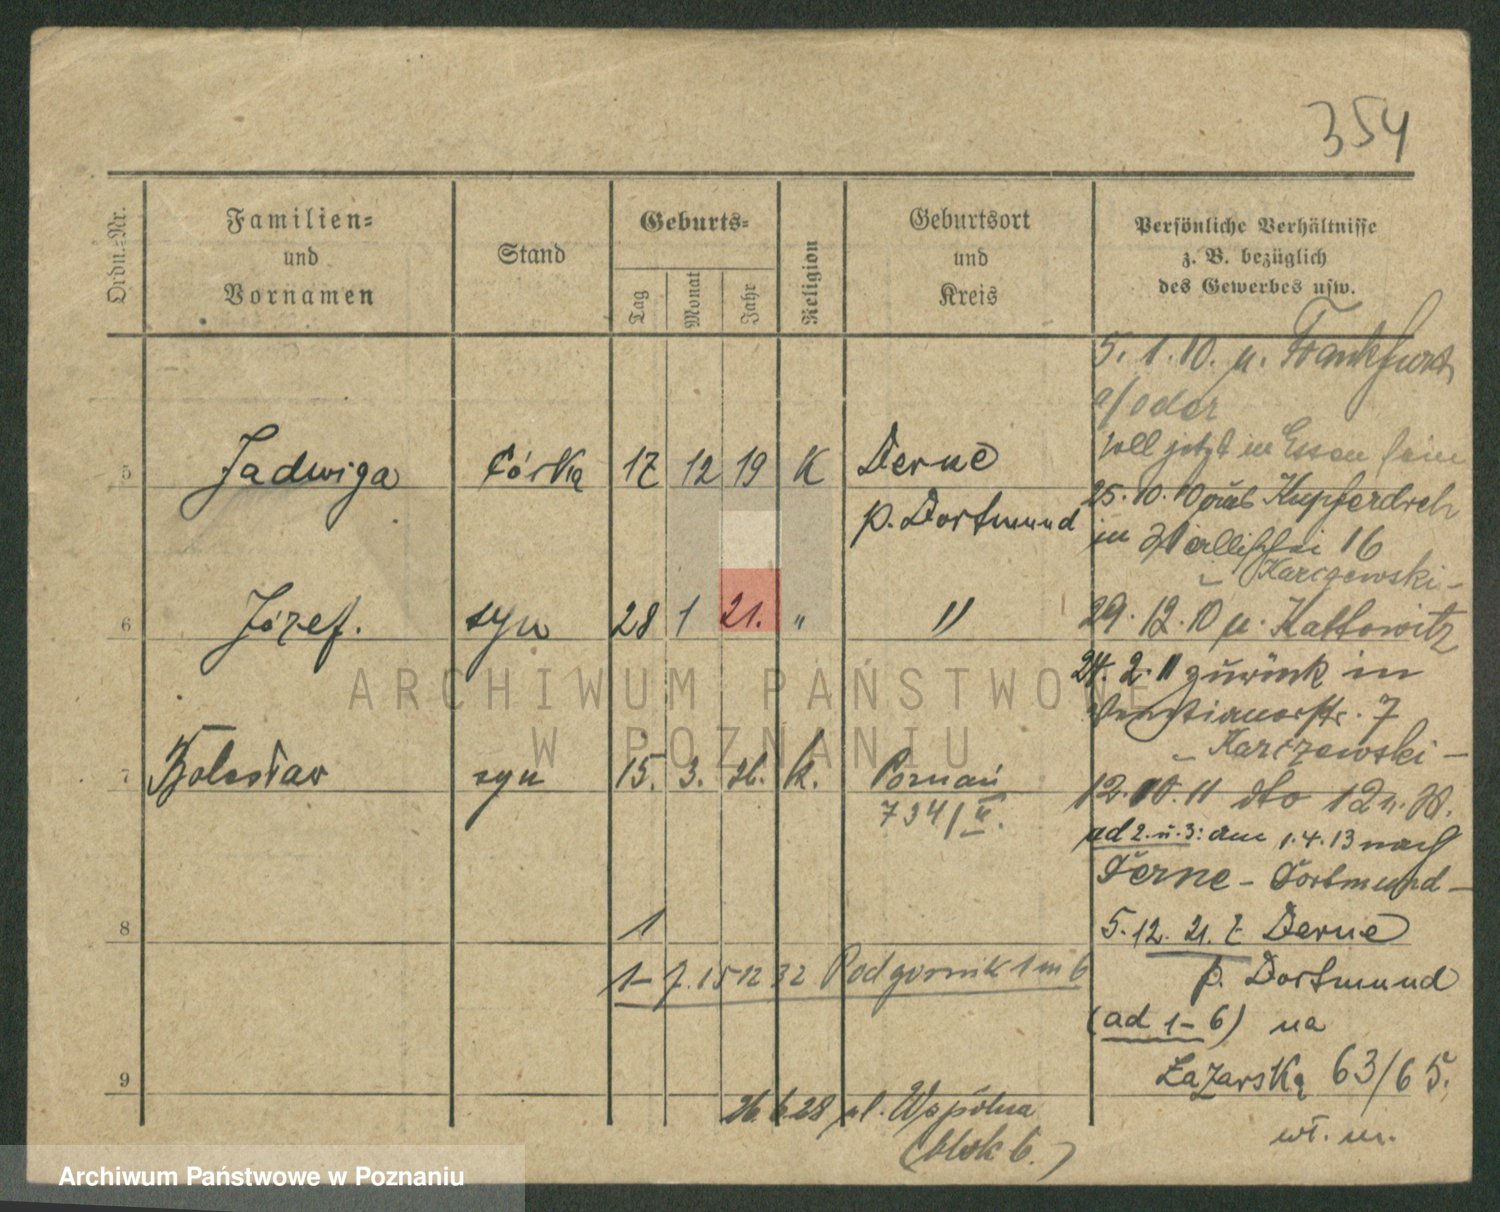 354
Ordn.-Nr.
Familien-
und
Vornamen
Stand
Geburts-
Tag
Monat
Jahr
Religion
Geburtsort
und
Kreis
Persönliche Verhältnisse
z. B. bezüglich
des Gewerbes usw.
5. 1. 10. u. Frankfurt
a/oder
soll jetzt in Essen sein
5 Jadwiga córka 17 12 19 K Derne
p. Dortmund
25. 10. 10 Kupferdreh
in 16
Karczewski -
6 Józef. syn 28 1 21. " "
29. 12. 10 u. Kattowitz
24. 2. 11 zurück in
7
- Karczewski -
7 Bolesław syn 15. 3. 26. k. Poznań
734/II.
12. 10. 11 dto 12
ad 2. u. 3: am 1.4.13 nach
Derne - Dortmund -
8 1
5. 12. 21. z Derne
p. Dortmund
1- 15 12 32 Podgórnik 1 m 6
(ad 1-6) na
Łazarską 63/65.
wł. m.
9
26. 6. 28 ul. Wspólna
(blok 6.)
ARCHIWUM PAŃSTWOWE
W POZNANIU
Archiwum Państwowe w Poznaniu